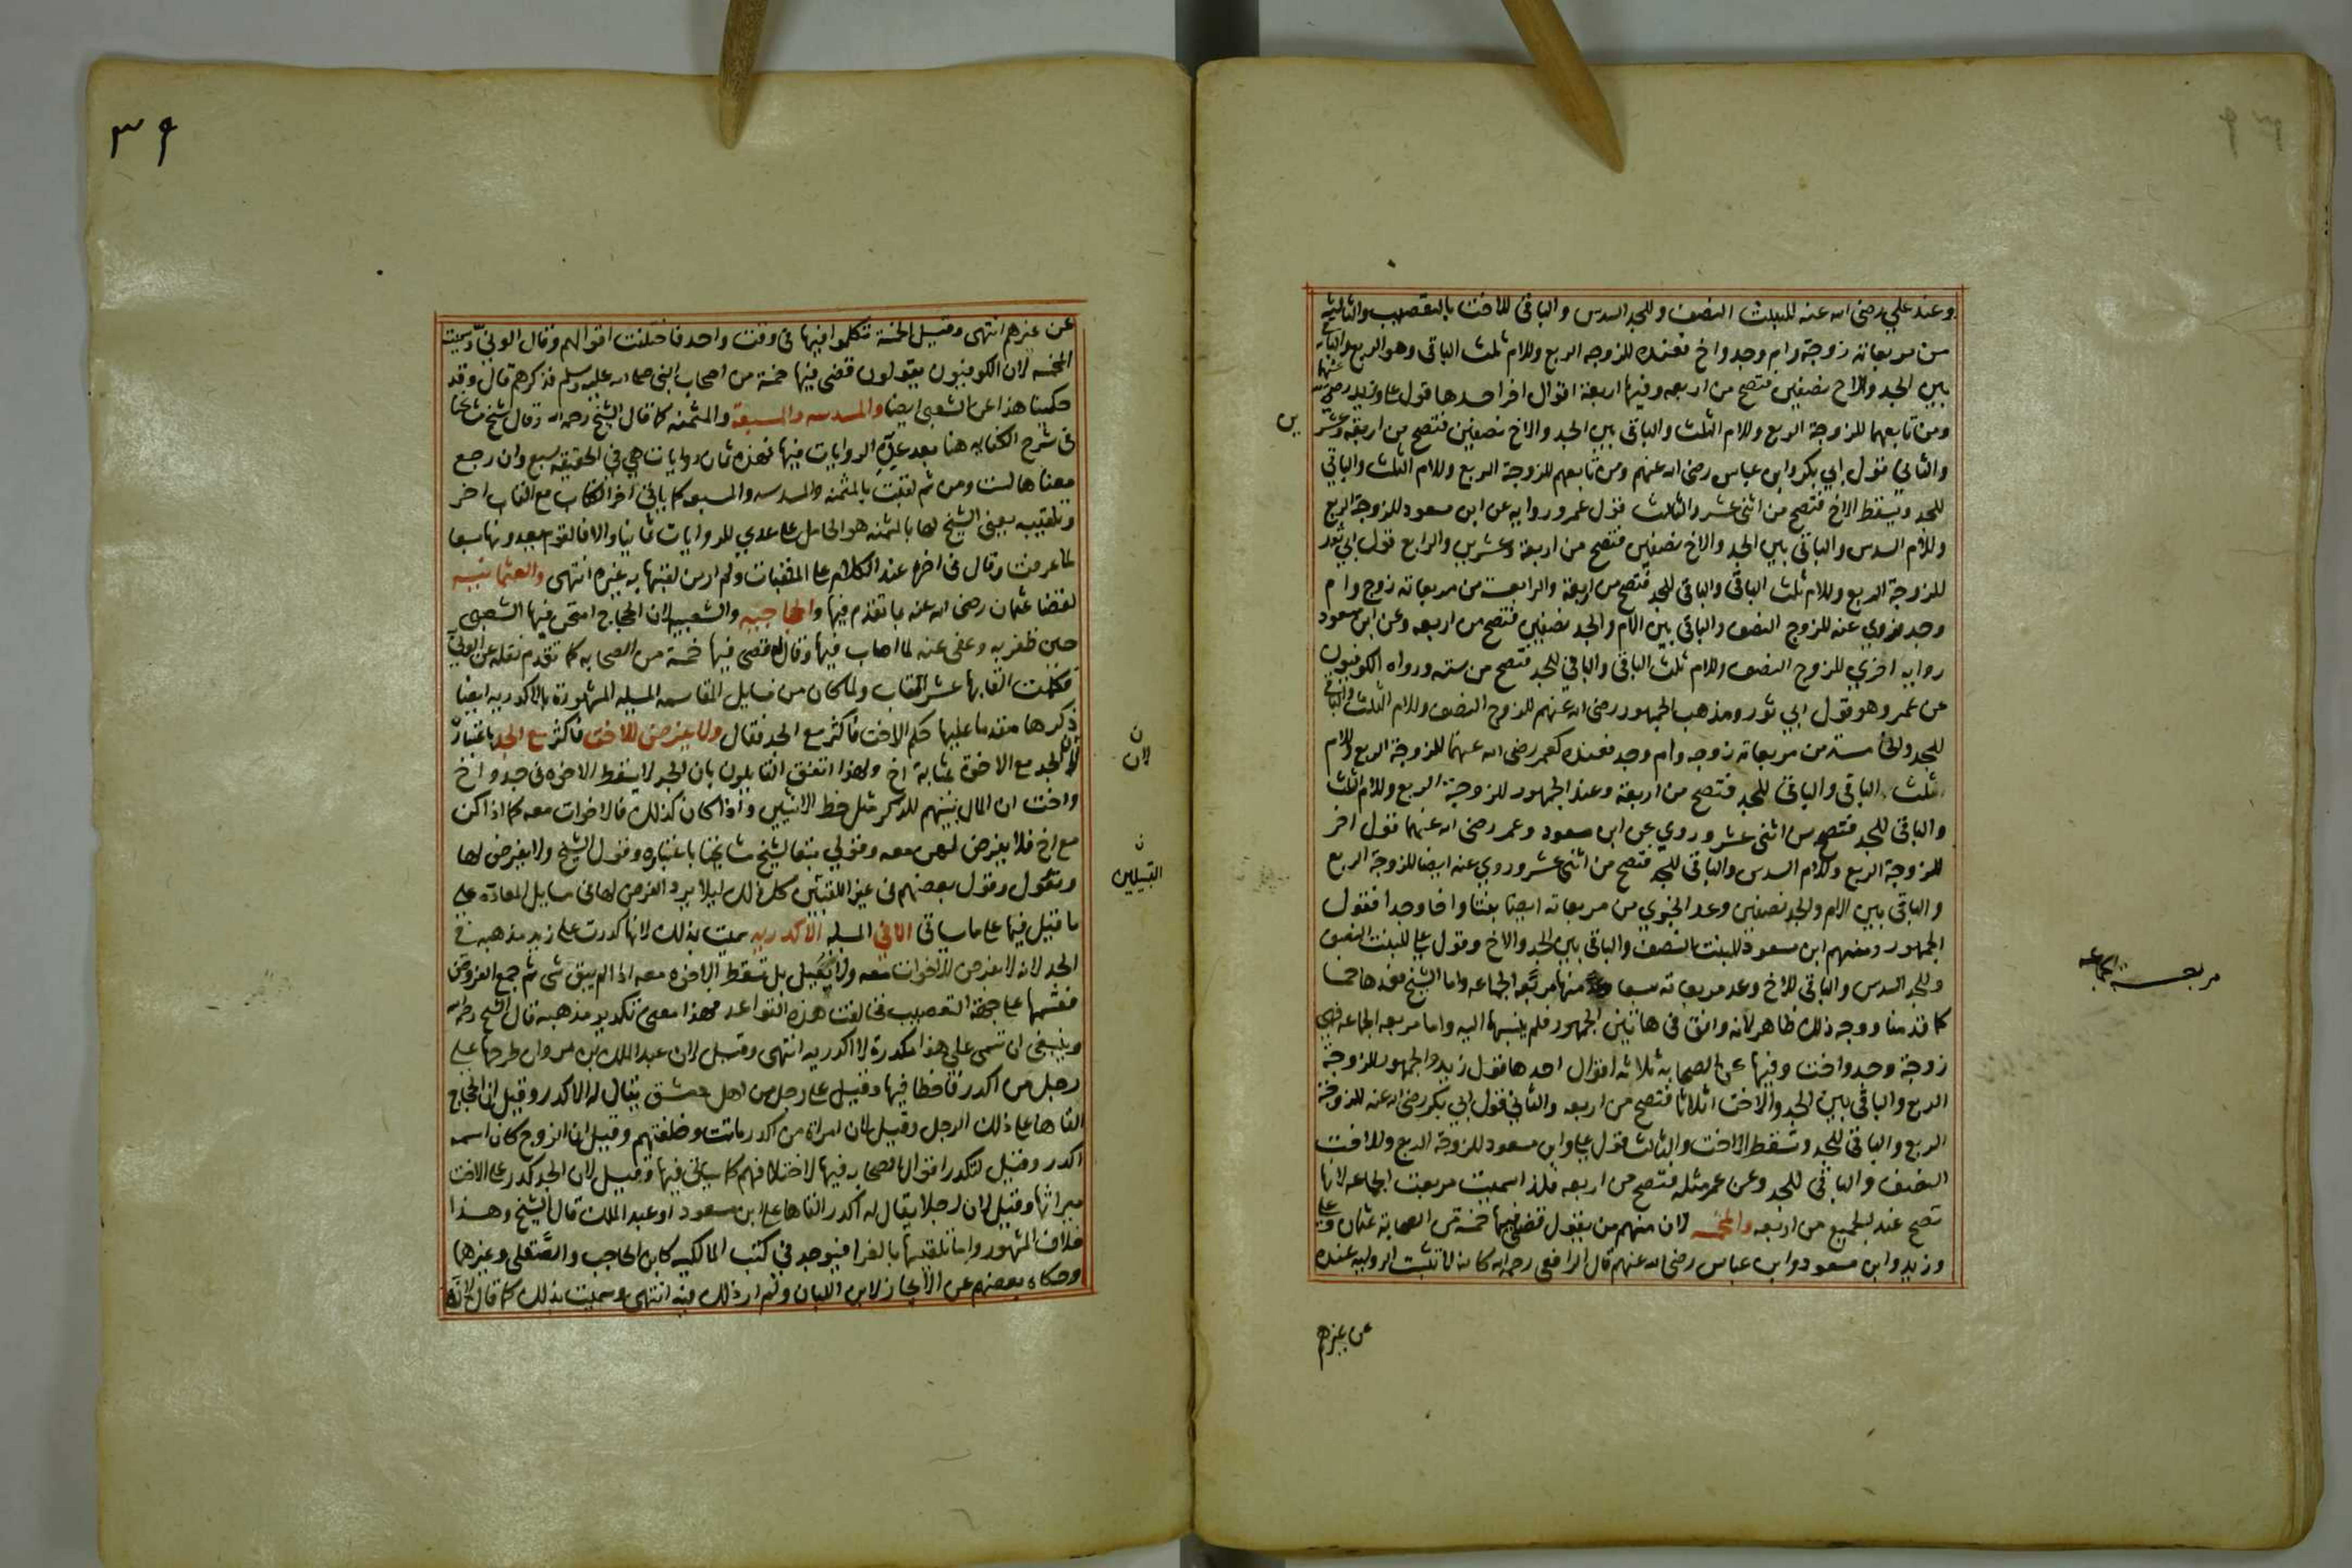 وعند علي رضى الله عنه للبنت النصف وللجد السدس والباقى للاخت بالتعصيب والثالثة
من مربعاته زوجة وام وجد واخ فعنده للزوجه الربع وللام ثلث الباقى وهو الربع والباقى
بين الجد والاخ نصفين فتصح من اربعه وفيها اربعة اقوال اخر احدها قول على وزيد رضى الله عنهما
ومن تابعهما للزوجة الربع وللام الثلث والباقى بين الجد والاخ نصفين فتصح من اربعة وعشرين
والثاني قول ابي بكر وابن عباس رضى الله عنهم ومن تابعهم للزوجة الربع وللام الثلث والباقي
للجد ويسقط الاخ فتصح من اثنى عشر والثالث قول عمر وروايه عن ابن مسعود للزوجة الربع
وللام السدس والباقى بين الجد والاخ نصفين فتصح من اربعة وعشرين والرابع قول ابي ثور
للزوجة الربع وللام ثلث الباقى والباقى للجد فتصح من اربعة والرابعة من مربعاته زوج وام
وجد فروي عنه للزوج النصف والباقى بين الام والجد نصفين فتصح من اربعه وعن ابن مسعود
روايه اخري للزوج النصف وللام ثلث الباقى والباقي للجد فتصح من سته ورواه الكوفيون
عن عمر وهو قول ابي ثور ومذهب الجمهور رضى الله عنهم للزوج النصف وللام الثلث والباقى
للجد والخامسة من مربعاته زوجه وام وجد فعنده كعمر رضى الله عنهما للزوجة الربع وللام
ثلث الباقى والباقى للجد فتصح من اربعة وعند الجمهور للزوجة الربع وللام الثلث
والباقى للجد فتصح من اثنى عشر وروي عن ابن مسعود وعمر رضى الله عنهما قول اخر
للزوجة الربع وللام السدس والباقى للجد فتصح من اثنى عشر وروي عنه ايضا للزوجة الربع
والباقى بين الام والجد نصفين وعد الخبري من مربعاته ايضا بنتا واخا وجدا فقول
الجمهور ومنهم ابن مسعود للبنت النصف والباقى بين الجد والاخ وقول على للبنت النصف
وللجد السدس والباقى للاخ وعد مربعاته سبعا وعد منها مربعه الجماعه واما الشيخ فعدها خمسا
كما قدمنا ووجه ذلك ظاهر لانه وافق فى هاتين الجمهور فلم ينسبها اليه واما مربعه الجماعه فهي
زوجة وجد واخت وفيها عن الصحابه ثلاثه اقوال احدها قول زيد والجمهور للزوجة
الربع والباقى بين الجد والاخت اثلاثا فتصح من اربعه والثاني قول ابي بكر رضى الله عنه للزوجة
الربع والباقى للجد وتسقط الاخت والثالث قول على وابن مسعود للزوجة الربع وللاخت
النصف والباقى للجد وعن عمر مثله فتصح من اربعه فلذا سميت مربعة الجماعه لانها
تصح عند الجميع من اربعه والمخمسه لان منهم من يقول قضى فيها خمسة من الصحابة عثمان وعلى
وزيد وابن مسعود وابن عباس رضى الله عنهم قال الرافعى رحمه الله كانه لم تثبت الروايه عنده
عن غيرهم
مربعة الجماعه
عن غيرهم انتهى وقيل الخمسة تكلموا فيها فى وقت واحد فاختلفت اقوالهم وقال الوني وسميت
المخمسه لان الكوفيون يقولون قضى فيها خمسة من اصحاب النبى صلى الله عليه وسلم فذكرهم قال وقد
حكينا هذا عن الشعبى ايضا والمسدسه والمسبعة والمثمنه كما قال الشيخ رحمه الله وقال شيخ مشايخنا
فى شرح الكفايه هنا بعد عد الروايات فيها فهذه ثمان روايات هي في الحقيقه سبع وان رجع
معناها لست ومن ثم لقبت بالمثمنه والمسدسه والمسبعه كما ياتى اخر الكتاب مع القاب اخر
وتلقيب يعنى الشيخ لها بالمثمنه هو الحامل على عدي للروايات ثمانيا والا فالقوم يعدونها سبعا
لما عرفت وقال فى اخره عند الكلام على الملقبات ولم ار من لقبها به غيره انتهى والعثمانيه
لقضا عثمان رضى الله عنه بما تقدم فيها والحجاجيه والشعبيه لان الحجاج امتحن فيها الشعبى
حين ظفر به وعفى عنه لما اصاب فيها وقال قضى فيها خمسة من الصحابه كما تقدم نقله عن الونى
فكملت القابها عشر القاب ولما كان من مسايل المقاسمه المسيله المشهورة بالاكدريه ايضا
ذكرها مقدما عليها حكم الاخت فاكثر مع الجد فقال ولا يفرض للاخت فاكثر مع الجد باعتبار
ان الجد مع الاخوة بمثابة اخ ولهذا اتفق القايلون بان الجد لا يسقط الاخوه فى جد واخ
واخت ان المال بينهم للذكر مثل حظ الانثيين واذا كان كذلك فالاخوات معه كما اذا كن
مع اخ فلا يفرض لهن معه وقولي تبعا لشيخ مشايخنا باعتباره وقول الشيخ ولا يفرض لها
وتعول وقول بعضهم فى غير اللقبتين كل ذلك ليلا يرد الفرض لها فى مسايل المعادّه على
ما قيل فيها على ما سياتى الا في المسله الاكدريه سميت بذلك لانها كدرت على زيد مذهبه في
الجد لانه لا يفرض للاخوات معه ولا يعيل بل تسقط الاخوه معه اذا لم يبق شى ثم جمع الفروض
فقسمها على جهة التعصيب فخالفت هذه القواعد فهذا معنى تكدير مذهبه قال الشيخ رحمه الله
وينبغى ان تسمى على هذا مكدرة لا اكدريه انتهى وقيل لان عبد الملك بن مروان طرحها على
رجل من اكدر فاخطا فيها وقيل على رجل من اهل دمشق يقال له الاكدر وقيل ان الحجاج
القاها على ذلك الرجل وقيل لان امراة من اكدر ماتت وخلفتهم وقيل ان الزوج كان اسمه
اكدر وقيل لتكدر اقوال الصحابه فيها لاختلافهم كما سياتى فيها وقيل لان الجد كدر على الاخت
ميراثها وقيل لان رجلا يقال له اكدر القاها على ابن مسعود او عبد الملك قال الشيخ وهذا
خلاف المشهور واما تلقيبها بالغرا فيوجد في كتب المالكيه كابن الحاجب والصَّقلى وغيرهما
وحكاه بعضهم عن الايجاز لابن اللبان ولم ار ذلك فيه انتهى وسميت بذلك كما قال لانه
ن
لان
ن
القبيلين
ين
٣٩